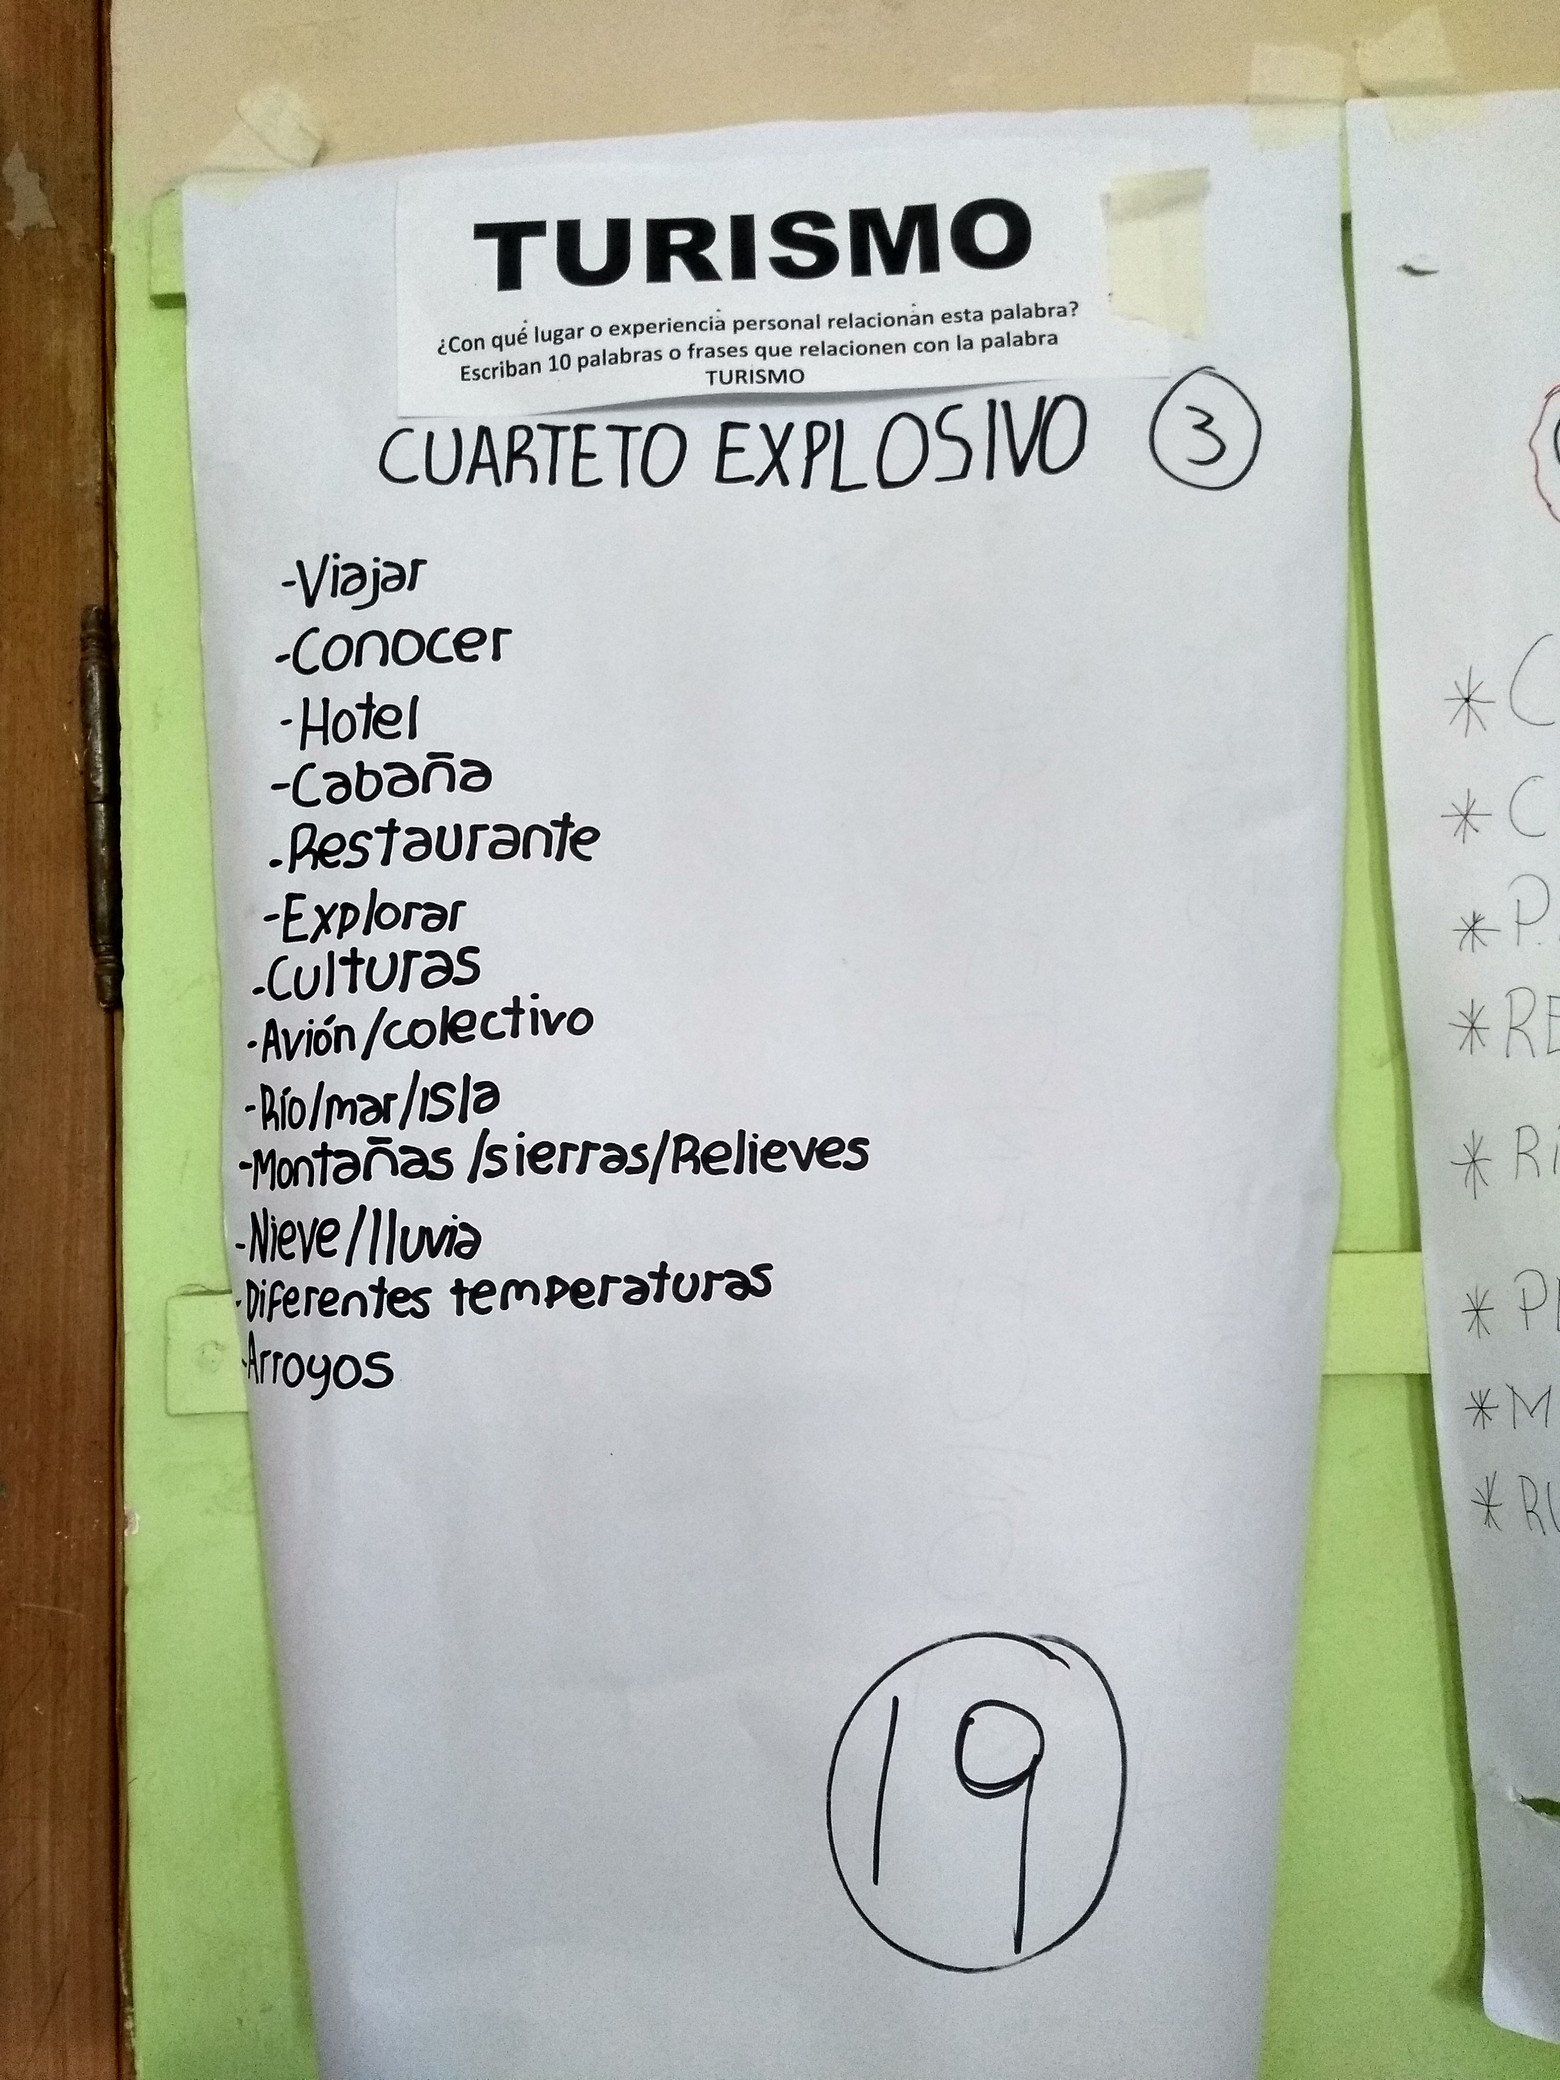 TURISMO
¿Con qué lugar o experiencia personal relacionan esta palabra?
Escriban 10 palabras o frases que relacionen con la palabra
TURISMO
CUARTETO EXPLOSIVO 3
-Viajar
-Conocer
-Hotel
-Cabaña
-Restaurante
-Explorar
-Culturas
-Avión/colectivo
-Río/mar/Isla
-Montañas/sierras/Relieves
-Nieve/lluvia
-Diferentes temperaturas
-Arroyos
19